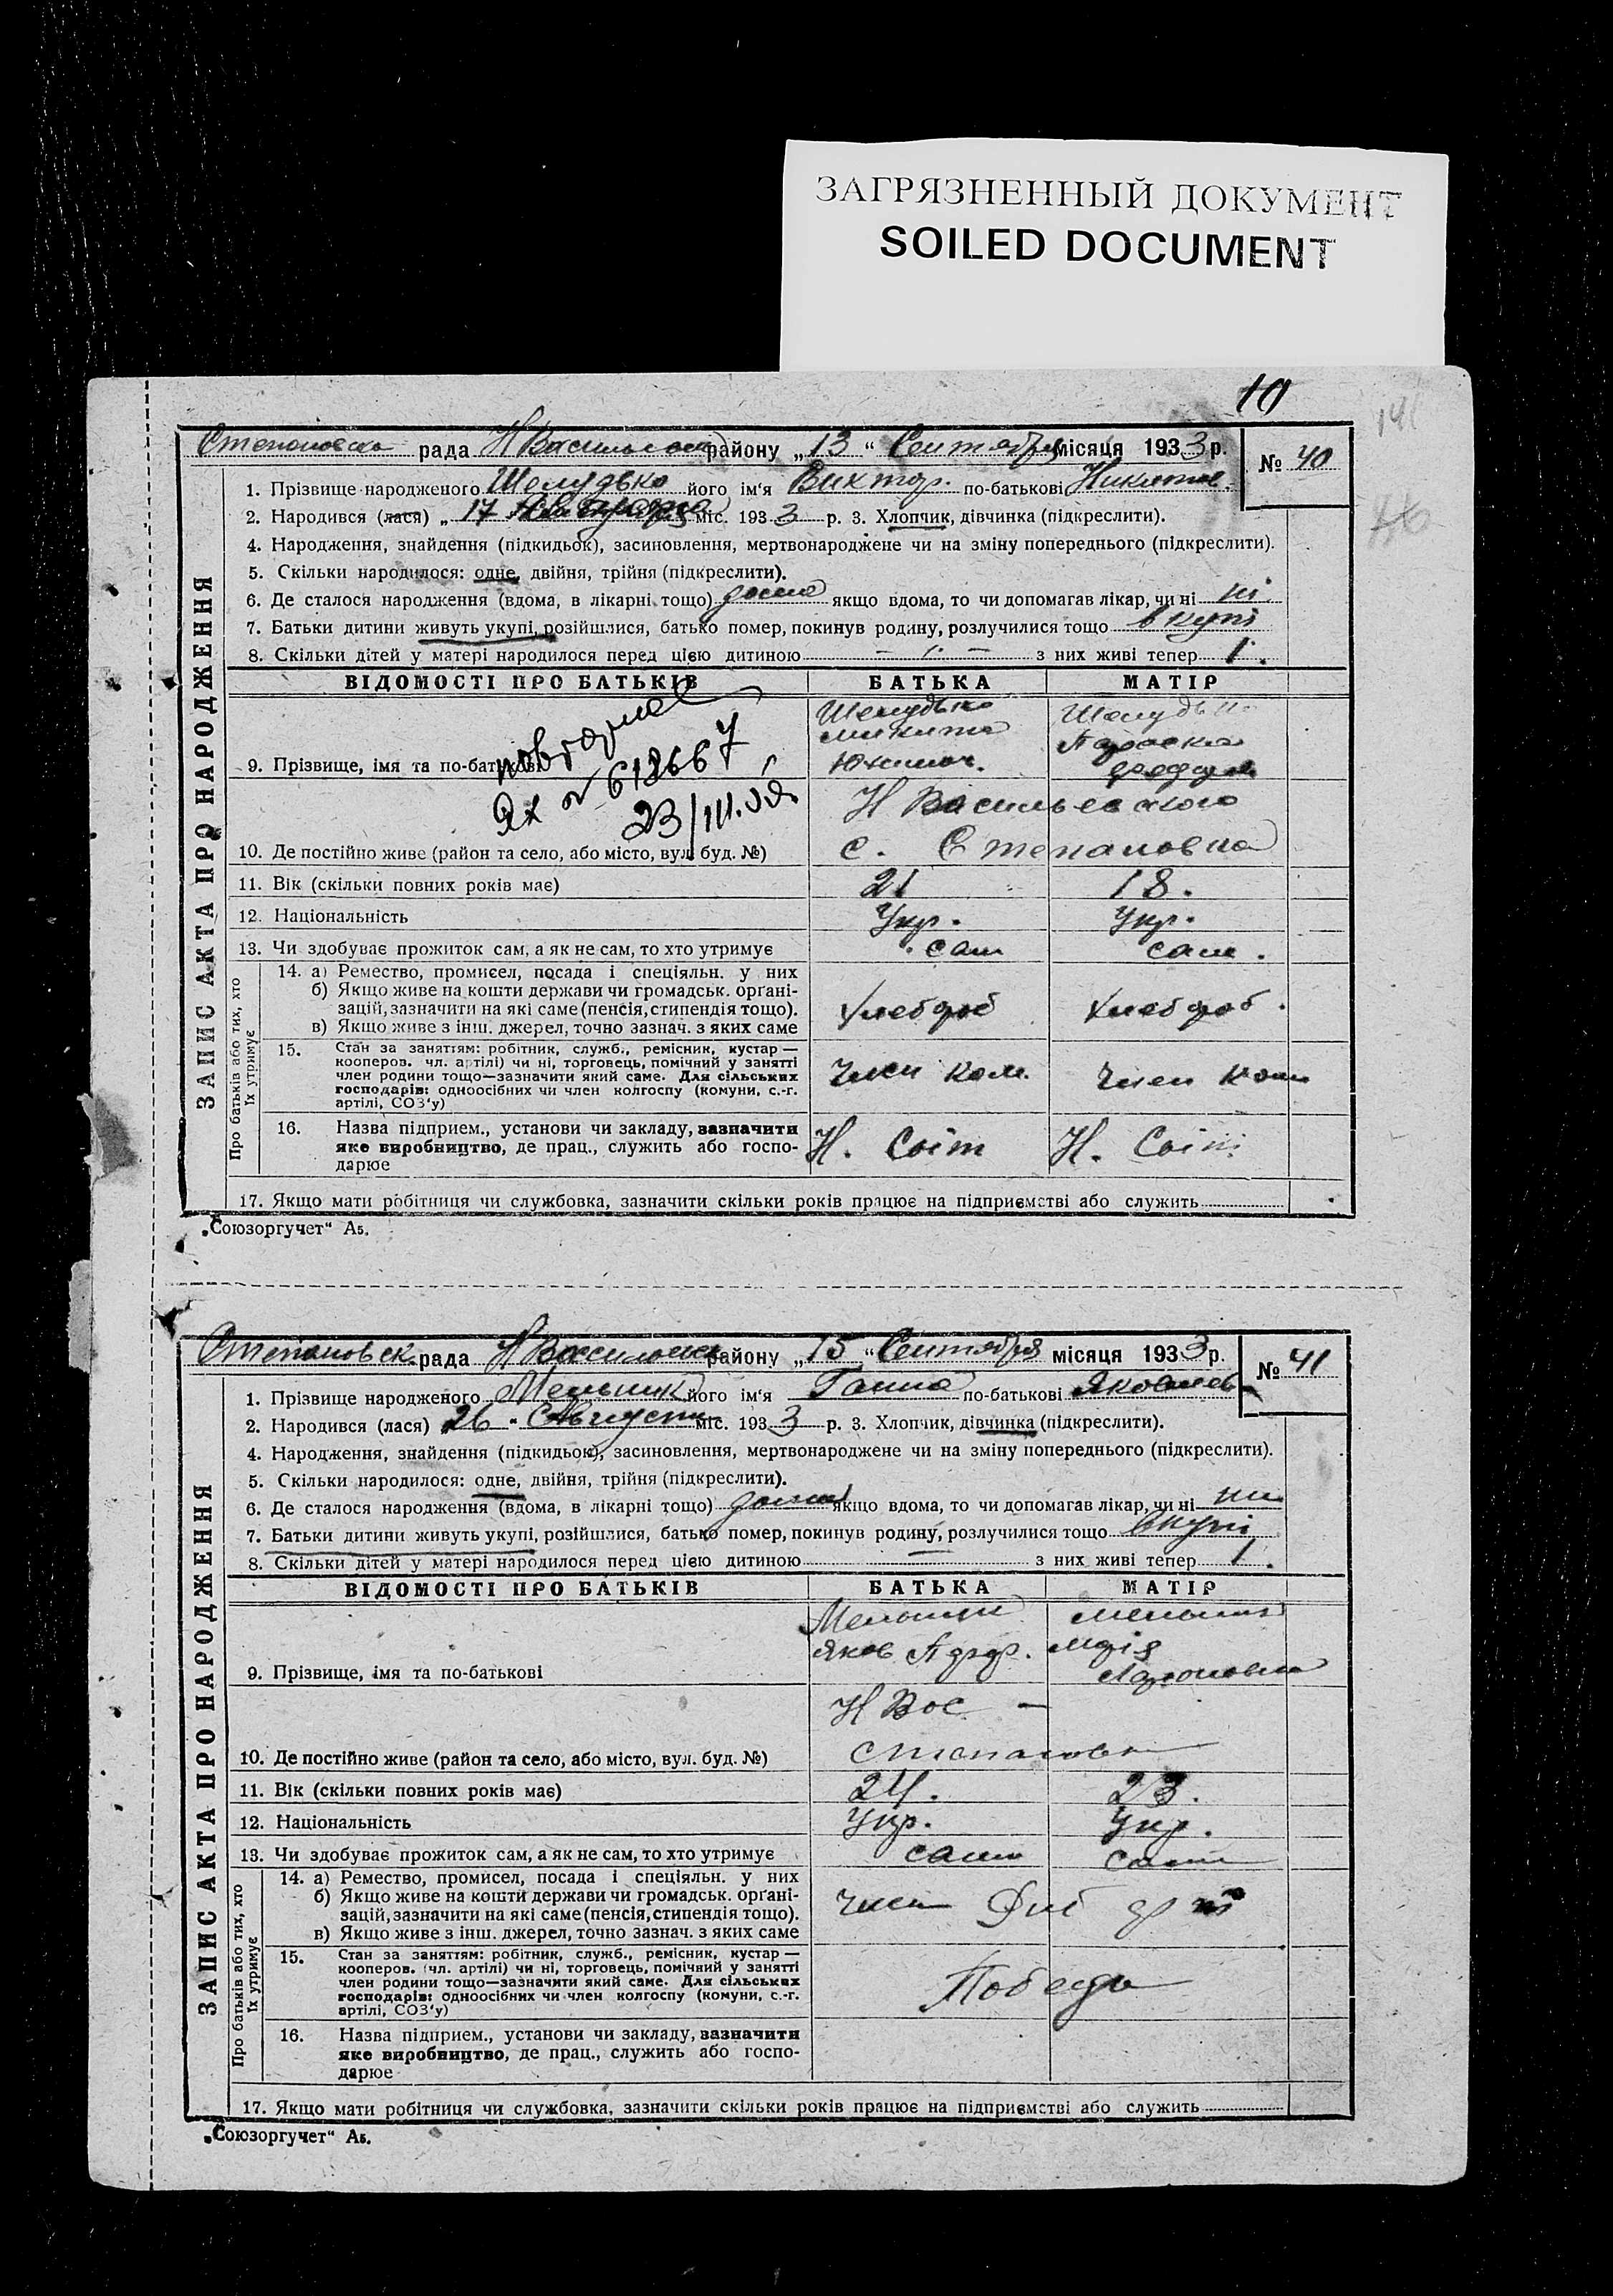 ЗАГРЯЗНЕННЫЙ ДОКУМЕНТ
SOILED DOCUMENT
10
рада Н Васильевск району „13“ Сентября місяця 1933 р. № 40
1. Прізвище народженого Шелудько його ім'я Виктор. по-батькові
2. Народився (лася) „17 міс. 1933 р. 3. Хлопчик, дівчинка (підкреслити).
4. Народження, знайдення (підкидьок), засиновлення, мертвонароджене чи на зміну попереднього (підкреслити).
5. Скільки народилося: одне, двійня, трійня (підкреслити).
6. Де сталося народження (вдома, в лікарні тощо) дома якщо вдома, то чи допомагав лікар, чи ні ні
7. Батьки дитини живуть укупі, розійшлися, батько помер, покинув родину, розлучилися тощо вкупі
8. Скільки дітей у матері народилося перед цією дитиною – 1 – з них живі тепер 1.
ЗАПИС АКТА ПРО НАРОДЖЕННЯ
ВІДОМОСТІ ПРО БАТЬКІВ БАТЬКА МАТІР
Шелудько Шелудько
Микита Параска
9. Прізвище, імя та по-батькові
618667
23/III
Н Васильевского
10. Де постійно живе (район та село, або місто, вул. буд. №) с. Степановка
11. Вік (скільки повних років має) 21 18.
12. Національність Укр. Укр.
13. Чи здобуває прожиток сам, а як не сам, то хто утримує сам сам.
Про батьків або тих, хто їх утримує
14. а) Ремество, промисел, посада і спеціяльн. у них
б) Якщо живе на кошти держави чи громадськ. орґані-
зацій, зазначити на які саме (пенсія, стипендія тощо). Хлебороб Хлебороб.
в) Якщо живе з інш. джерел, точно зазнач. з яких саме
15. Стан за заняттям: робітник, служб., ремісник, кустар—
кооперов. чл. артілі) чи ні, торговець, помічний у занятті
член родини тощо—зазначити який саме. Для сільських Член кол. Член кол
господарів: одноосібних чи член колгоспу (комуни, с.-г.
артілі, СОЗ'у)
16. Назва підприєм., установи чи закладу, зазначити
яке виробництво, де прац., служить або госпо- Н. Світ Н. Світ
дарює
17. Якщо мати робітниця чи службовка, зазначити скільки років працює на підприємстві або служить
„Союзоргучет“ А5.
Степановск. рада Н Васильевск району „15“ Сентября місяця 1933 р. № 41
1. Прізвище народженого Мельник його ім'я Ганна по-батькові Яковлев
2. Народився (лася) 26 Августа міс. 1933 р. 3. Хлопчик, дівчинка (підкреслити).
4. Народження, знайдення (підкидьок), засиновлення, мертвонароджене чи на зміну попереднього (підкреслити).
5. Скільки народилося: одне, двійня, трійня (підкреслити).
6. Де сталося народження (вдома, в лікарні тощо) дома якщо вдома, то чи допомагав лікар, чи ні ни
7. Батьки дитини живуть укупі, розійшлися, батько помер, покинув родину, розлучилися тощо вкупі
8. Скільки дітей у матері народилося перед цією дитиною — з них живі тепер 1.
ЗАПИС АКТА ПРО НАРОДЖЕННЯ
ВІДОМОСТІ ПРО БАТЬКІВ БАТЬКА МАТІР
Мельник Мельник
Яков Марія
9. Прізвище, імя та по-батькові
Н Вас —
10. Де постійно живе (район та село, або місто, вул. буд. №) Степановк
11. Вік (скільки повних років має) 24. 23.
12. Національність Укр. Укр.
13. Чи здобуває прожиток сам, а як не сам, то хто утримує сам сам
Про батьків або тих, хто їх утримує
14. а) Ремество, промисел, посада і спеціяльн. у них
б) Якщо живе на кошти держави чи громадськ. орґані-
зацій, зазначити на які саме (пенсія, стипендія тощо). Член
в) Якщо живе з інш. джерел, точно зазнач. з яких саме
15. Стан за заняттям: робітник, служб., ремісник, кустар—
кооперов. (чл. артілі) чи ні, торговець, помічний у занятті
член родини тощо—зазначити який саме. Для сільських Победа
господарів: одноосібних чи член колгоспу (комуни, с.-г.
артілі, СОЗ'у)
16. Назва підприєм., установи чи закладу, зазначити
яке виробництво, де прац., служить або госпо-
дарює
17. Якщо мати робітниця чи службовка, зазначити скільки років працює на підприємстві або служить
„Союзоргучет“ А5.